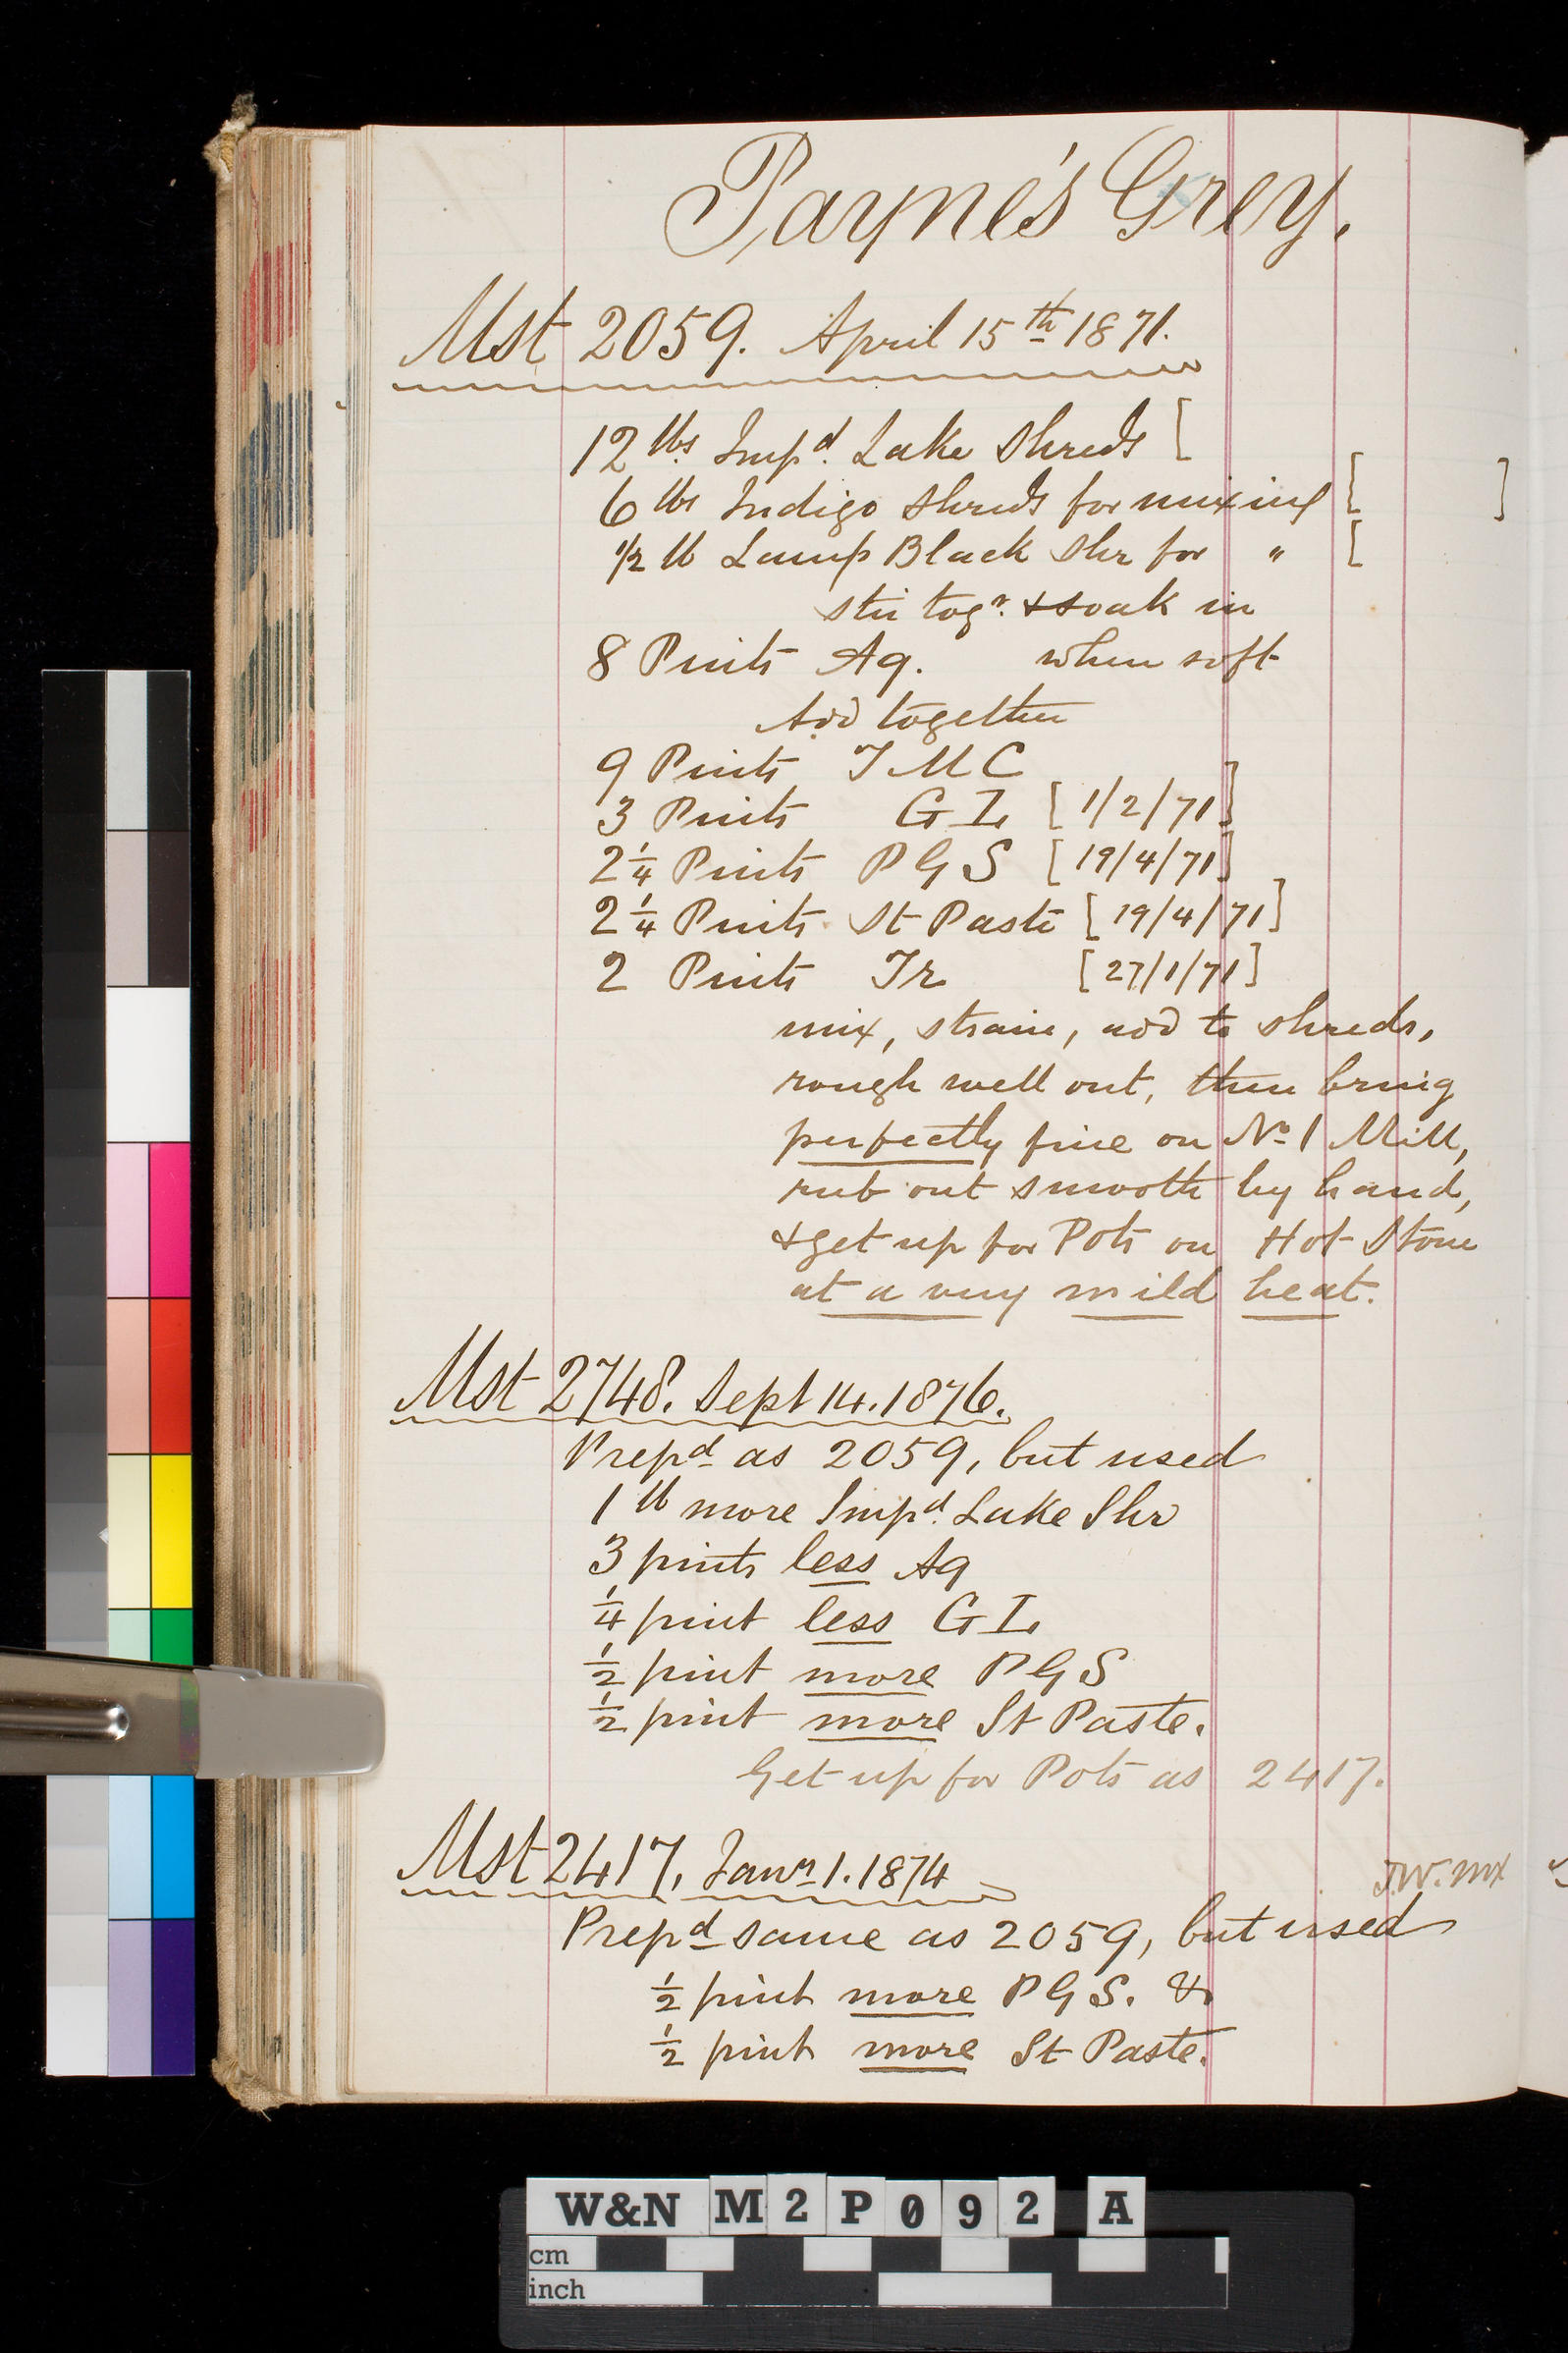 Payne's Grey.
Mst 2059. April 15th 1871.
12 lbs Impd. Lake Shreds [
6 lbs Indigo Shreds for mixing [ ]
1/2 lb Lamp Black Shr for " [
stir togr. & soak in
8 Pints Aq. when soft
Add together
9 Pints TMC
3 Pints GL [1/2/71]
2 1/4 Pints PGS [19/4/71]
2 1/4 Pints St Paste [19/4/71]
2 Pints Tr [27/1/71]
mix, strain, add to shreds,
rough well out, then bring
perfectly fine on No 1 Mill,
rub out smooth by hand,
& get up for Pots on Hot Stone
at a very mild heat.
Mst 2748. Sept 14. 1876.
Prepd as 2059, but used
1 lb more Impd. Lake Shr
3 pints less Aq
1/4 pint less GL
1/2 pint more PGS
1/2 pint more St Paste.
Get up for Pots as 2417.
Mst 2417. Janr 1. 1874
J.W. mx
Prepd same as 2059, but used
1/2 pint more PGS. &
1/2 pint more St Paste.
W&N M2P092 A
cm
inch